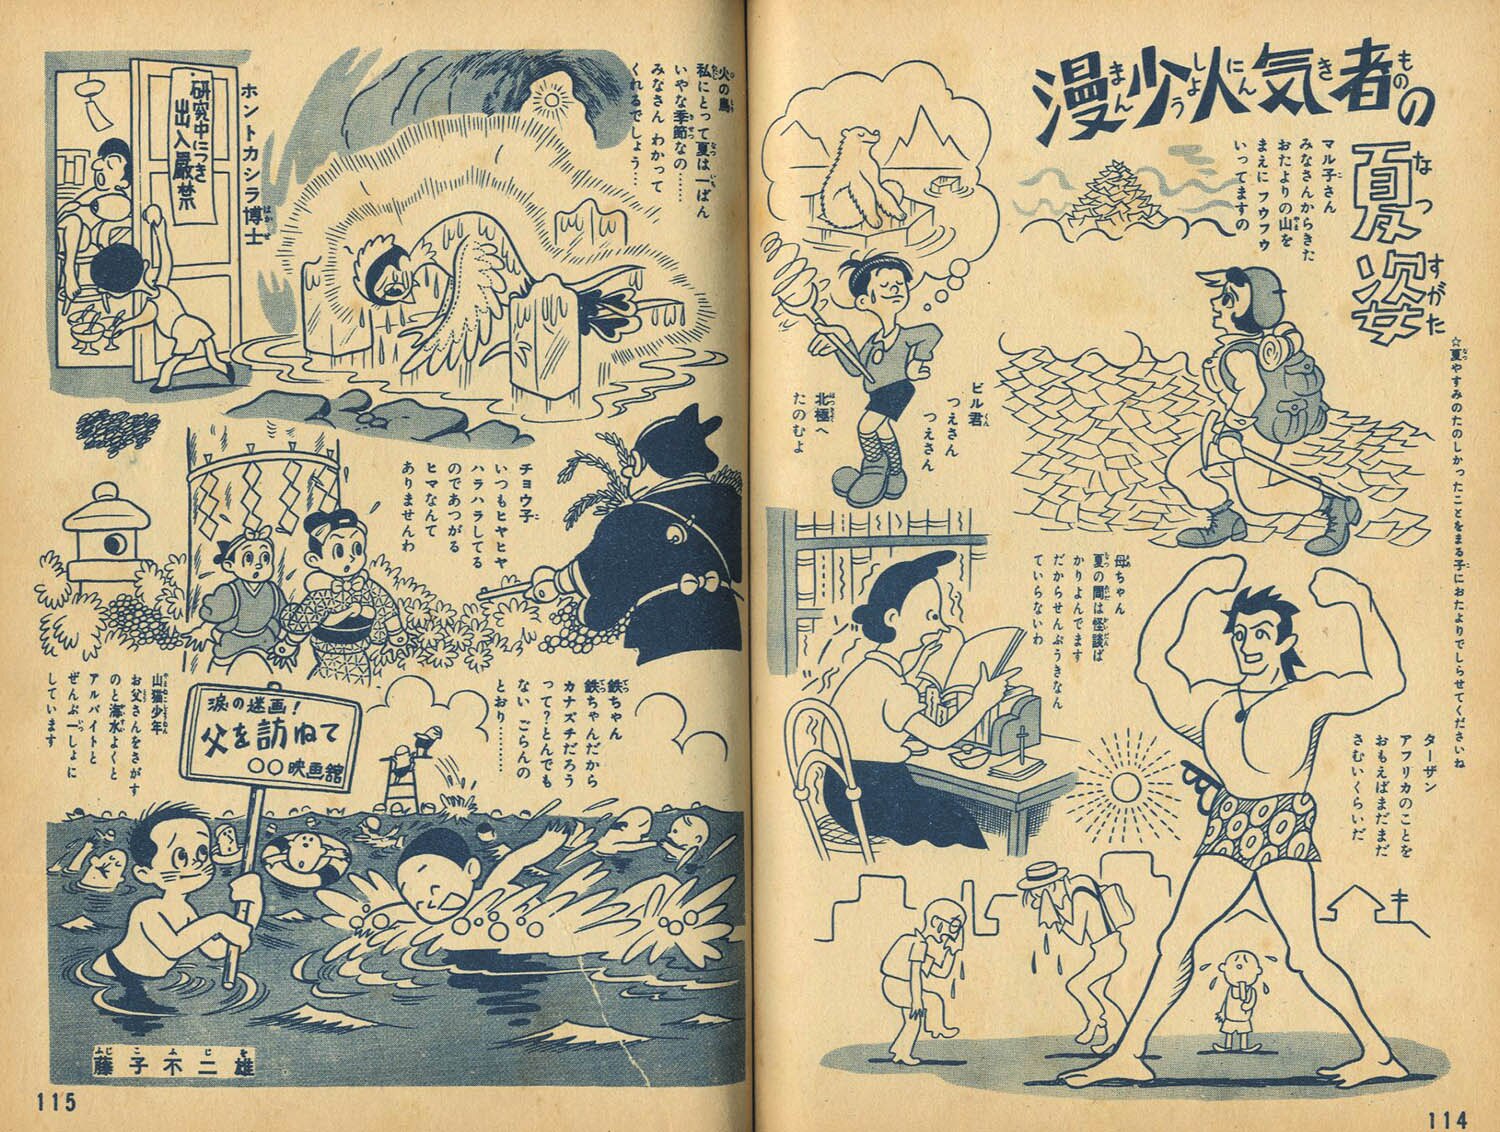 漫少人気者の
まんしょうにんきもの
夏姿
なつすがた
☆夏やすみのたのしかったことをまる子におたよりでしらせてくださいね
マル子さん
みなさんからきた
おたよりの山を
まえに フウフウ
いってますの
ビル君
つえさん
つえさん
北極へ
たのむよ
母ちゃん
夏の間は怪談ば
かりよんでます
だからせんぷうきなん
ていらないわ
ターザン
アフリカのことを
おもえばまだまだ
さむいくらいだ
114
火の鳥
私にとって夏は一ばん
いやな季節なの……
みなさん わかって
くれるでしょう…
ホントカシラ博士
研究中につき
出入厳禁
チョウ子
いつもヒヤヒヤ
ハラハラしてる
のであつがる
ヒマなんて
ありませんわ
鉄ちゃん
鉄ちゃんだから
カナズチだろう
って?とんでも
ない ごらんの
とおり………
山猫少年
お父さんをさがす
のと海水よくと
アルバイトと
ぜんぶ一しょに
しています
涙の迷画!
父を訪ねて
○○映画館
藤子不二雄
ふじこふじを
115